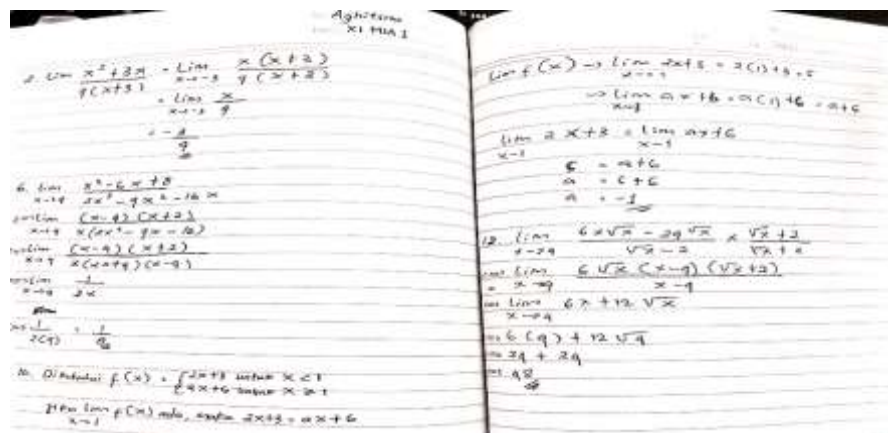 XI MIA 1
2. Lim x² + 3x / 9(x+3) = Lim x→-3 x(x+3) / 9(x+3)
= Lim x→-3 x/9
= -3/9
6. Lim x→4
Lim x→4 (x-4)(x+2)
Lim x→4 (x-4)(x+2)
Lim x→4 1/2x
1/2(4) = 1/8
10. Diketahui f(x) = { 2x+3 untuk x < 1
untuk x ≥ 1
lim x→1 f(x) ada, maka 2x+3 = ax+6
Lim f(x) → Lim x→1 2x+3 = 2(1)+3 = 5
→ Lim x→1 ax+6 = a(1)+6 = a+6
Lim x→1 2x+3 = Lim x→1 ax+6
= a+6
a
a = -1
12. Lim x→4 6x√x - 24√x / √x - 2 × √x + 2 / √x + 2
Lim x→4 6√x (x-4)(√x+2) / x-4
Lim x→4 6x + 12√x
= 6(4) + 12√4
= 24 + 24
= 48